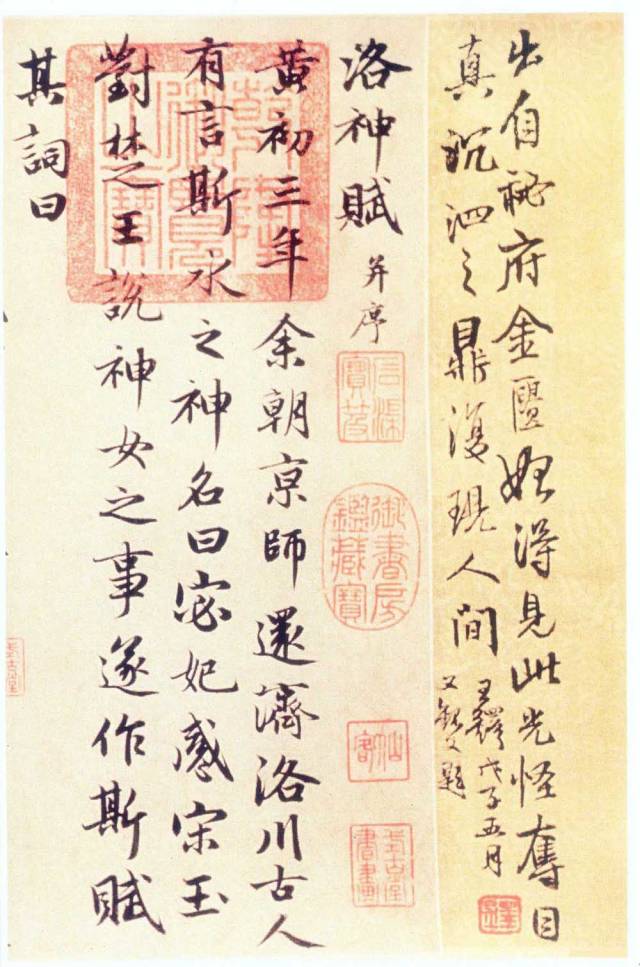 出自秘府金匱始得見此光怪奪目
真沉泗之鼎復現人間
王鐸戊子五月
又題
洛神賦
并序
黃初三年余朝京師還濟洛川古人
有言斯水之神名曰宓妃感宋玉
對楚王說神女之事遂作斯賦
其詞曰
御書房鑑藏寶
仙客
式古堂書畫